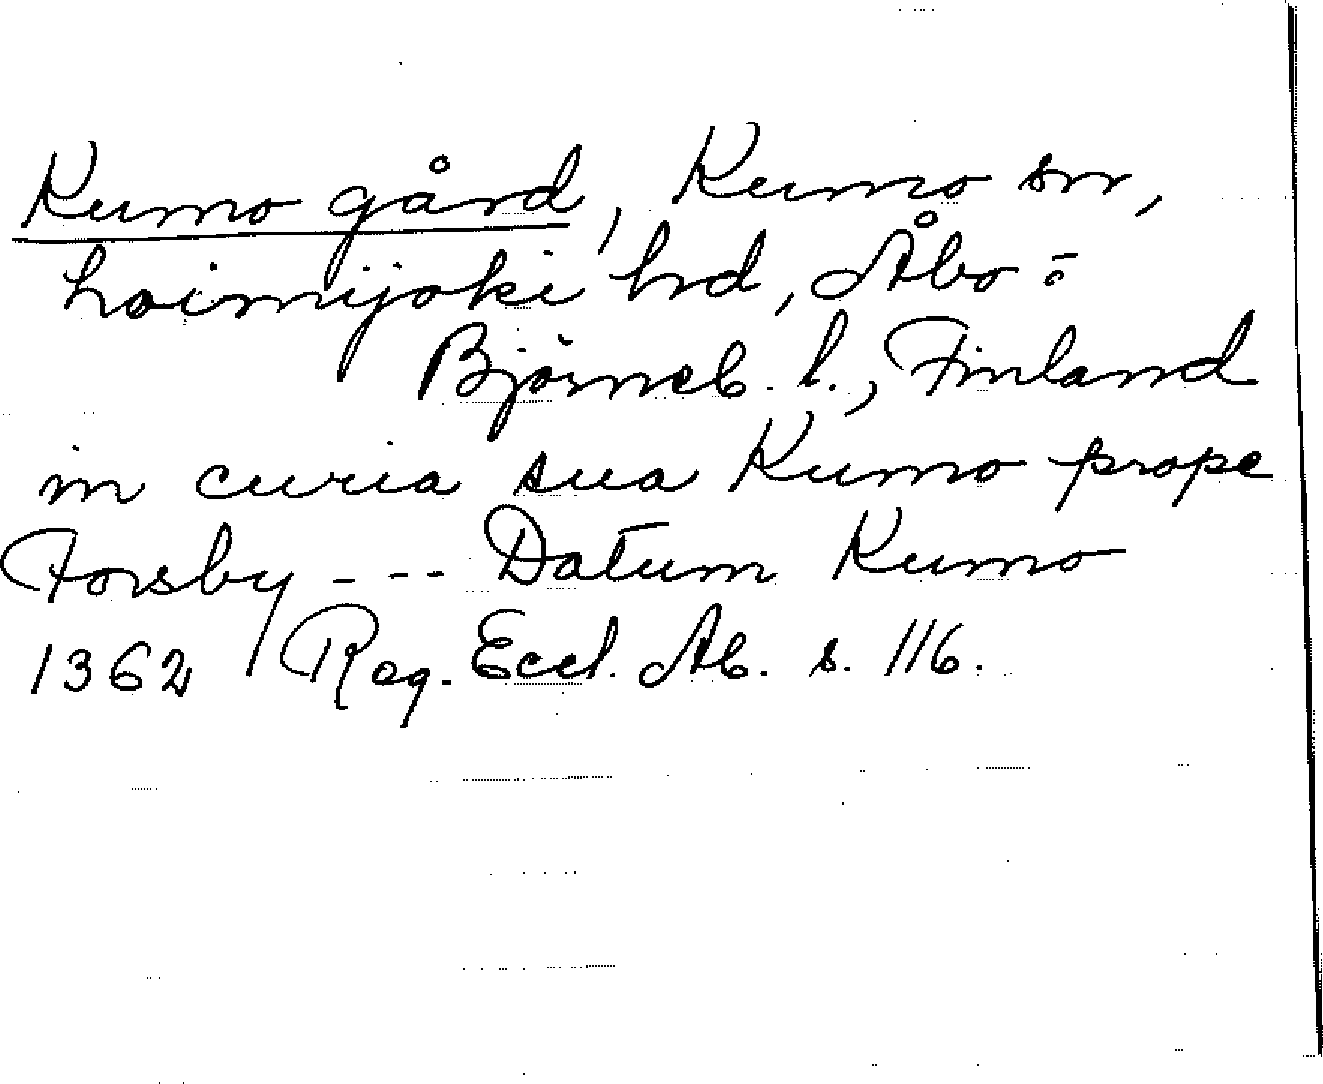 Kumo gård, Kumo sn,
Loimijoki hd, Åbo =
Björneb. l., Finland
in curia sua Kumo prope
Forsby - - - Datum Kumo
1362 Reg. Eccl. Ab. s. 116.